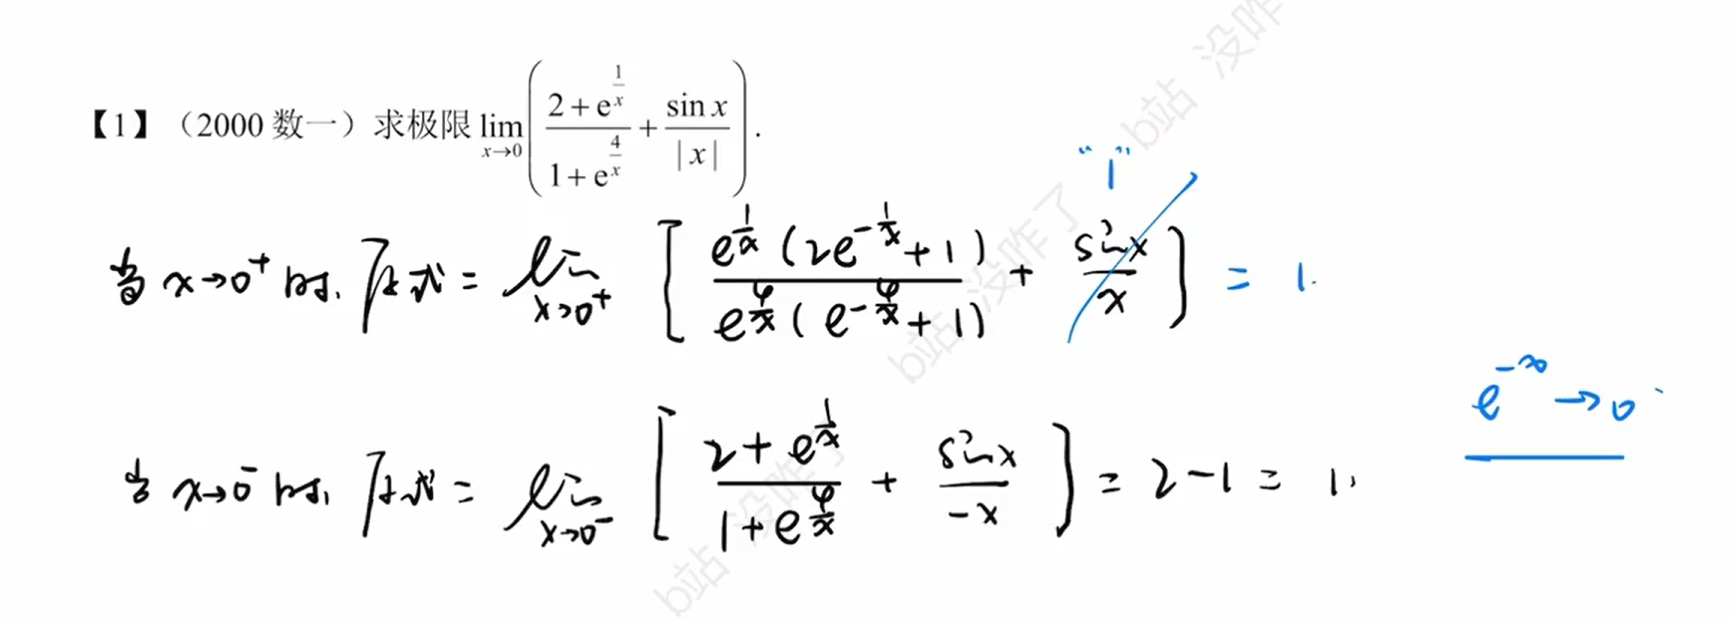 【1】（2000 数一）求极限 lim_{x→0} ( (2+e^{1/x})/(1+e^{4/x}) + sin x/|x| ).
"1"
当 x→0⁺ 时, 原式 = lim_{x→0⁺} [ e^{1/x}(2e^{-1/x}+1) / e^{4/x}(e^{-4/x}+1) + sin x/x ] = 1.
e^{-∞} → 0
当 x→0⁻ 时, 原式 = lim_{x→0⁻} [ (2+e^{1/x})/(1+e^{4/x}) + sin x/-x ] = 2-1 = 1.
b站 没咋了
b站 没咋了
b站 没咋